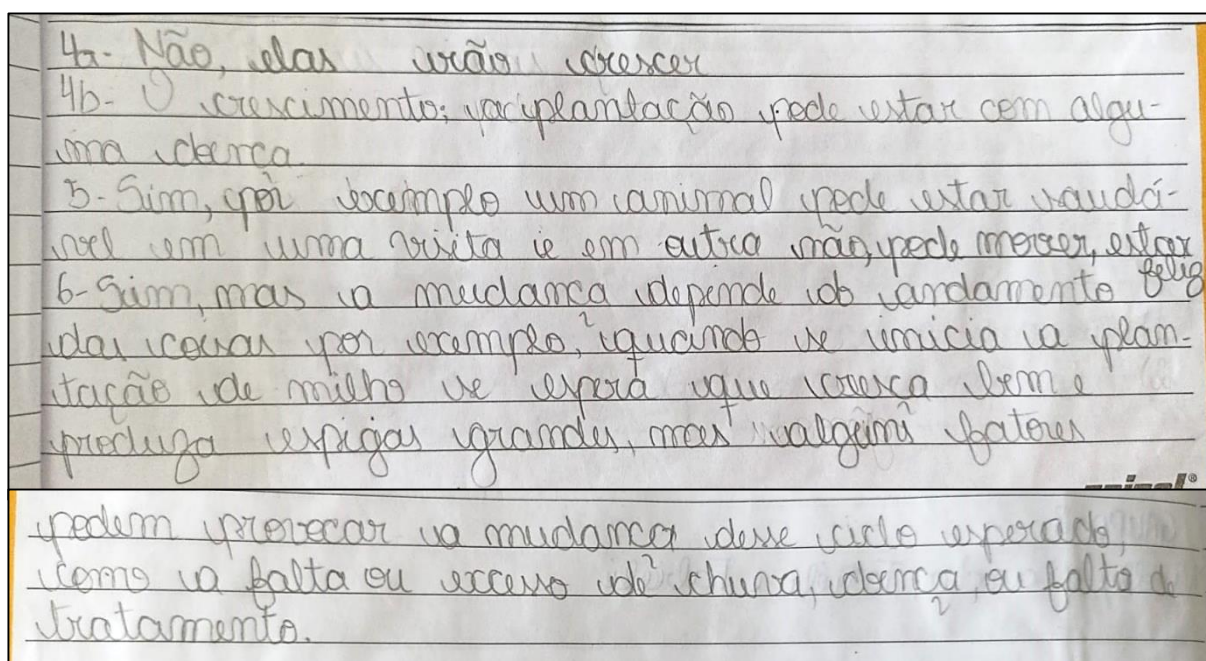 4a- Não, elas irão crescer
4b- O crescimento; a plantação pode estar com algu-
ma doença.
5- Sim, por exemplo um animal pode estar saudá-
vel em uma visita e em outra não, pode morrer, estar
feliz
6- Sim, mas a mudança depende do andamento
das coisas por exemplo, quando se inicia a plan-
tação de milho se espera que cresça bem e
produza espigas grandes, mas fatores
podem provocar a mudança desse ciclo esperado,
como a falta ou excesso de chuva, doença, ou falta de
tratamento.